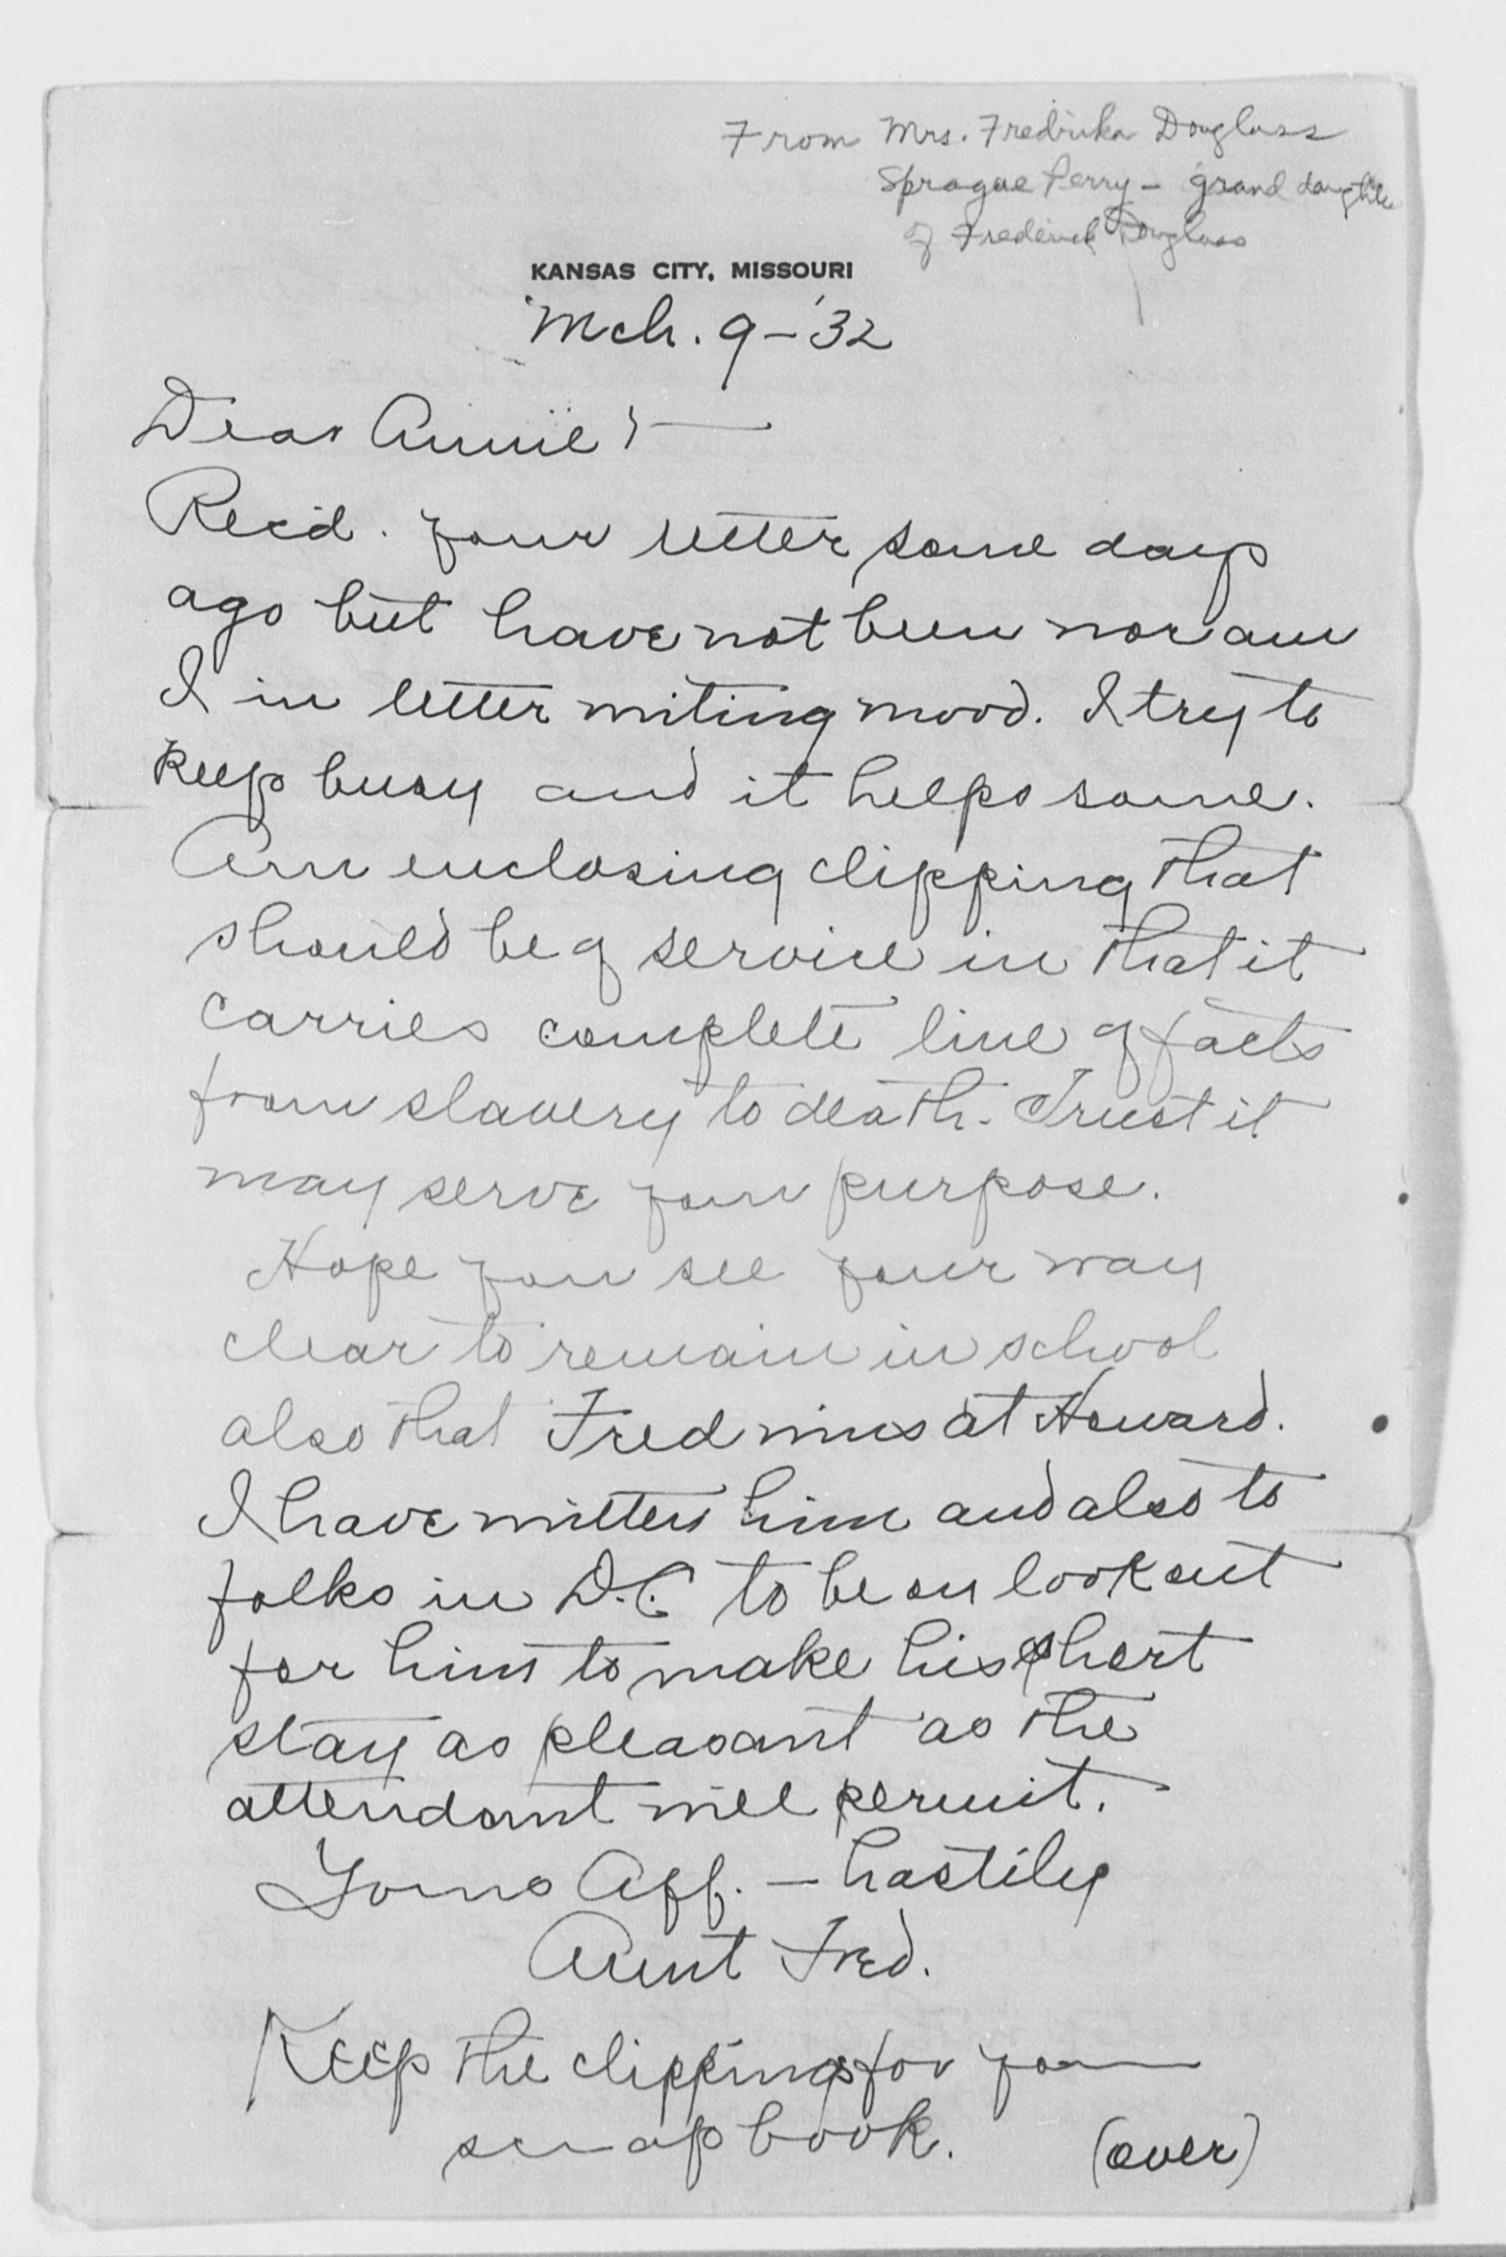 From Mrs. Fredrika Douglass
Sprague Perry – grand daughter
of Frederick Douglass
KANSAS CITY, MISSOURI
Mch. 9–'32
Dear Annie :—
Rec'd. your letter some days
ago but have not been nor am
I in letter writing mood. I try to
keep busy and it helps some.
Am enclosing clipping that
should be of service in that it
carries complete line of facts
from slavery to death. Trust it
may serve your purpose.
Hope you see your way
clear to remain in school
also that Fred wins at Howard.
I have written him and also to
folks in D.C. to be on lookout
for him to make his short
stay as pleasant as the
attendant will permit.
Yours Aff. – hastily
Aunt Fred.
Keep the clippings for your
scrap book. (over)